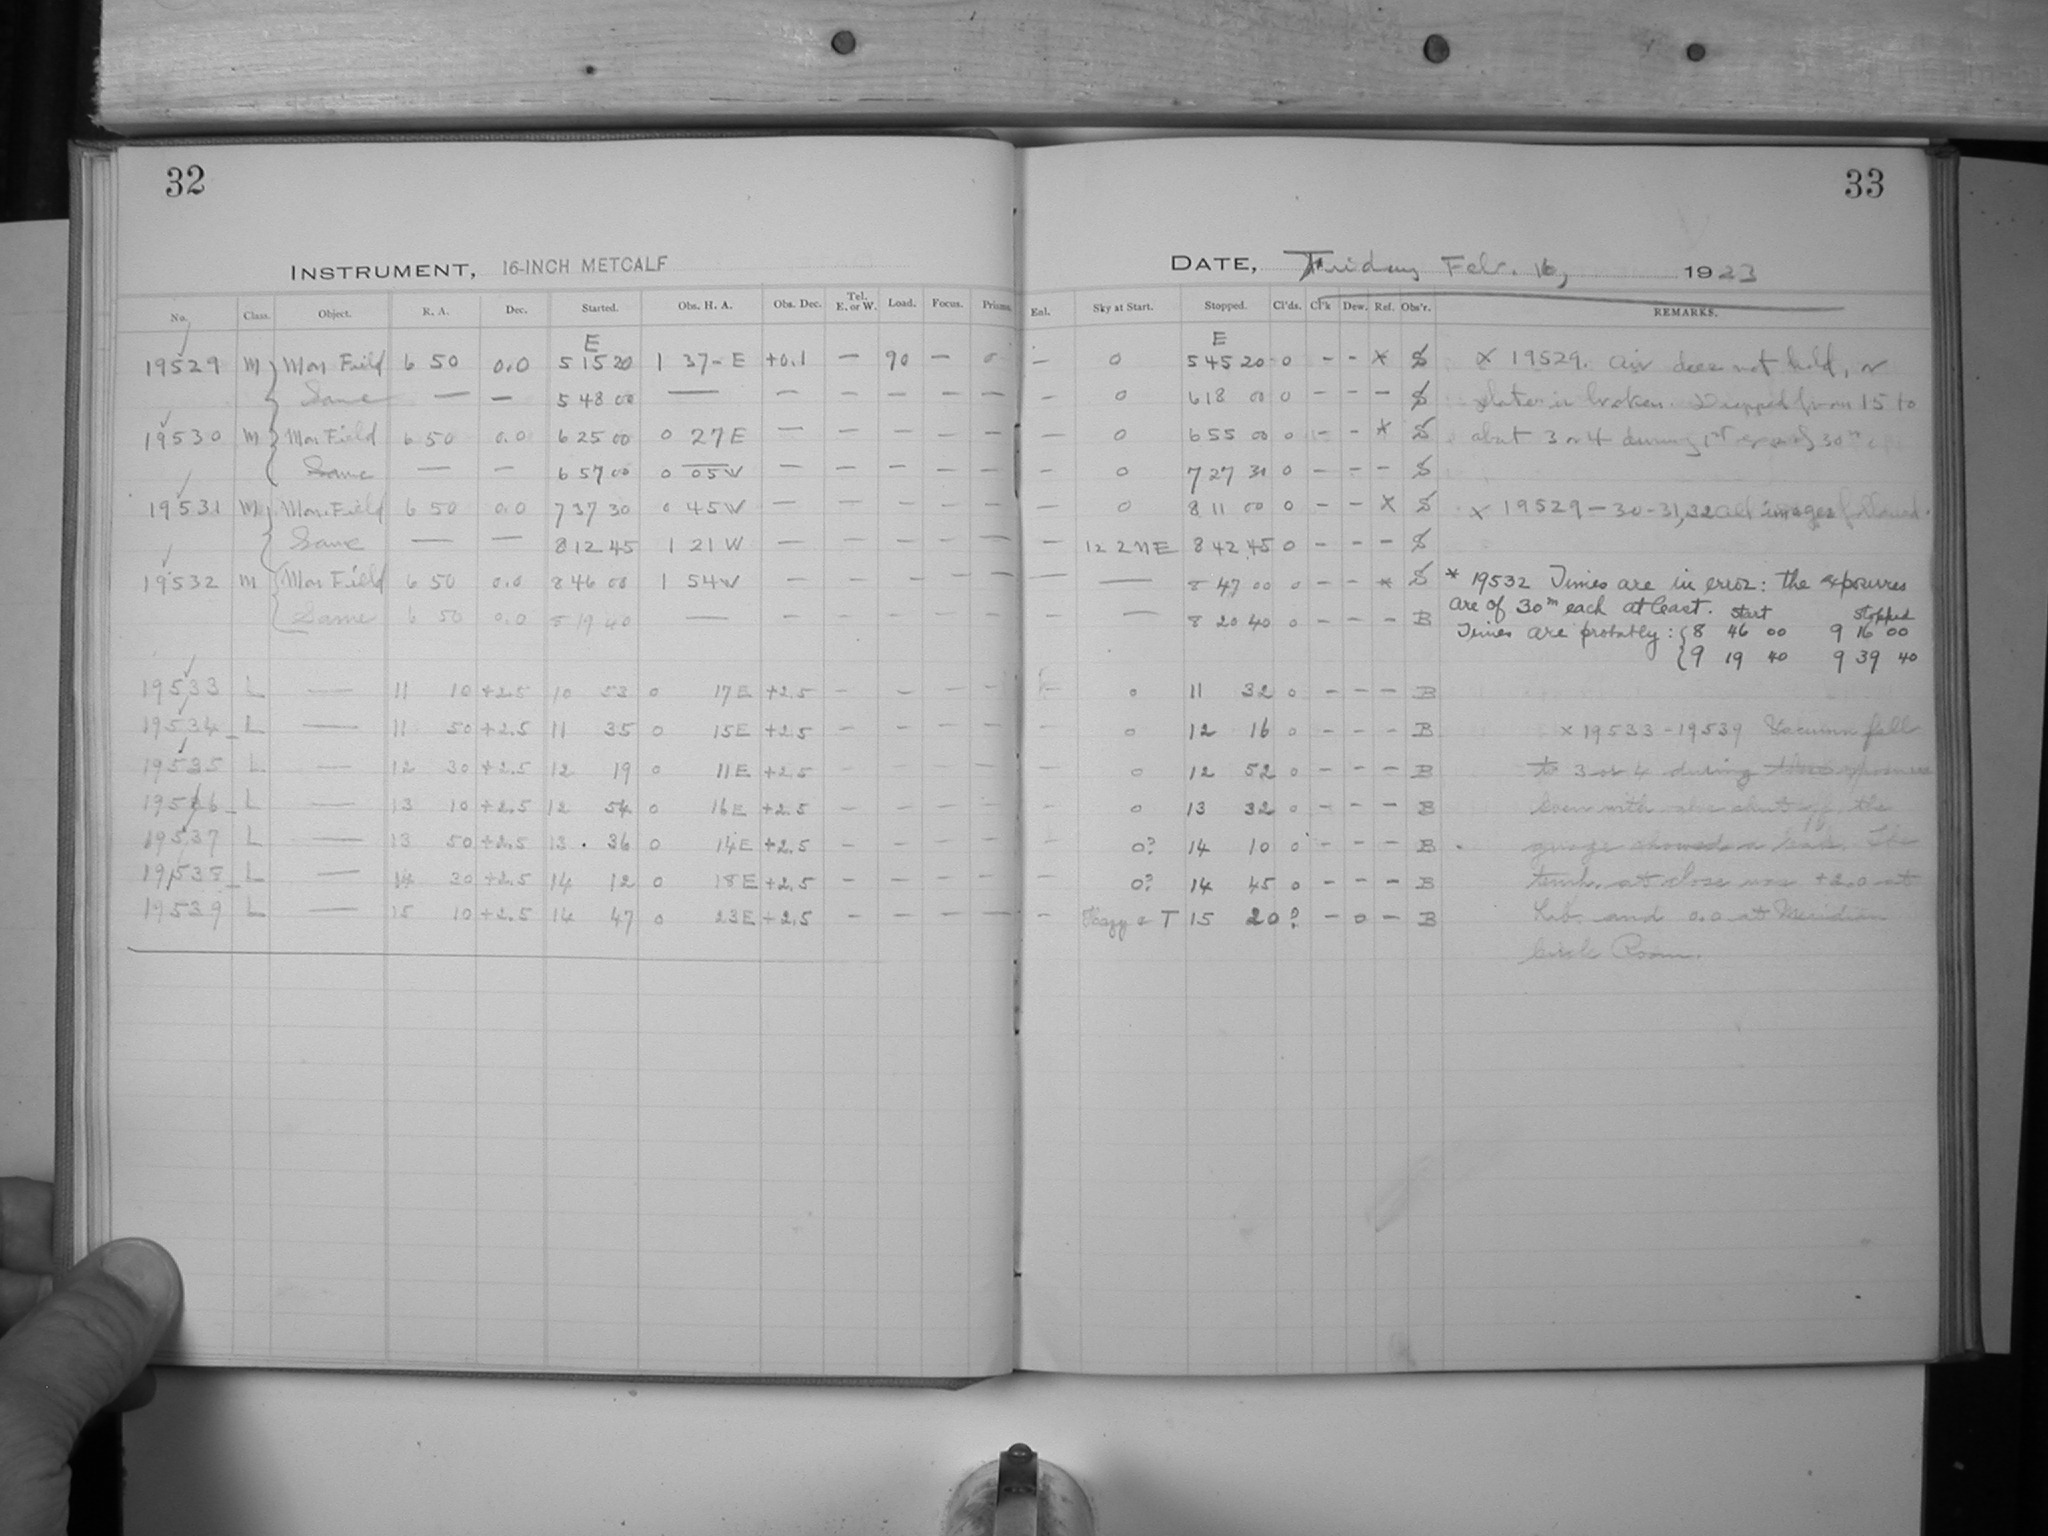 32
33
INSTRUMENT, 16-INCH METCALF
DATE, Friday Feb. 16, 1923
No. Class. Object. R. A. Dec. Started. Obs. H. A. Obs. Dec. Tel. E. or W. Load. Focus. Prisms. Enl. Sky at Start. Stopped. Cl'ds. Cl'k Dew. Ref. Obs'r. REMARKS.
E E
19529 M Mon Field 6 50 0.0 5 15 20 1 37- E +0.1 — 90 — 0 — 0 5 45 20 0 - - * S x 19529. Air does not hold, or
Same — — 5 48 00 — — — — — — — 0 6 18 00 0 - - - S plate is broken. Dropped from 15 to
19530 M Mon Field 6 50 0.0 6 25 00 0 27 E — — — — — — 0 6 55 00 0 - - * S about 3 or 4 during 1st of 30m
Same — — 6 57 00 0 05 W — — — — — — 0 7 27 30 0 - - - S
19531 M Mon. Field 6 50 0.0 7 37 30 0 45 W — — — — — — 0 8 11 00 0 - - x S x 19529 — 30 - 31, 32 all images
Same — — 8 12 45 1 21 W — — — — — — 12 2 NE 8 42 45 0 - - - S
19532 M Mon Field 6 50 0.0 8 46 00 1 54 W — — — — — — — 8 47 00 0 - - * S * 19532 Times are in error: the exposures
are of 30m each at least. Start Stopped
Same 6 50 0.0 8 19 40 — — — — — — — — 8 20 40 0 - - - B Times are probably: { 8 46 00 9 16 00
{ 9 19 40 9 39 40
19533 L — 11 10 +2.5 10 53 0 17 E +2.5 - - - - - 0 11 32 0 - - - B
19534 L — 11 50 +2.5 11 35 0 15 E +2.5 - - - - - 0 12 16 0 - - - B x 19533 - 19539 Vacuum fell
19535 L — 12 30 +2.5 12 19 0 11 E +2.5 - - - - - 0 12 52 0 - - - B to 3 or 4 during these exposures
19536 L — 13 10 +2.5 12 54 0 16 E +2.5 - - - - - 0 13 32 0 - - - B Even with shut off the
19537 L — 13 50 +2.5 13 36 0 14 E +2.5 - - - - - 0? 14 10 0 - - - B guage showed a leak. The
19538 L — 14 30 +2.5 14 12 0 18 E +2.5 - - - - - 0? 14 45 0 - - - B temp. at close was +2.0 at
19539 L — 15 10 +2.5 14 47 0 23 E +2.5 - - - - - Hazy & T 15 20 ? - 0 - B Lab. and 0.0 at Meridian
Circle Room.